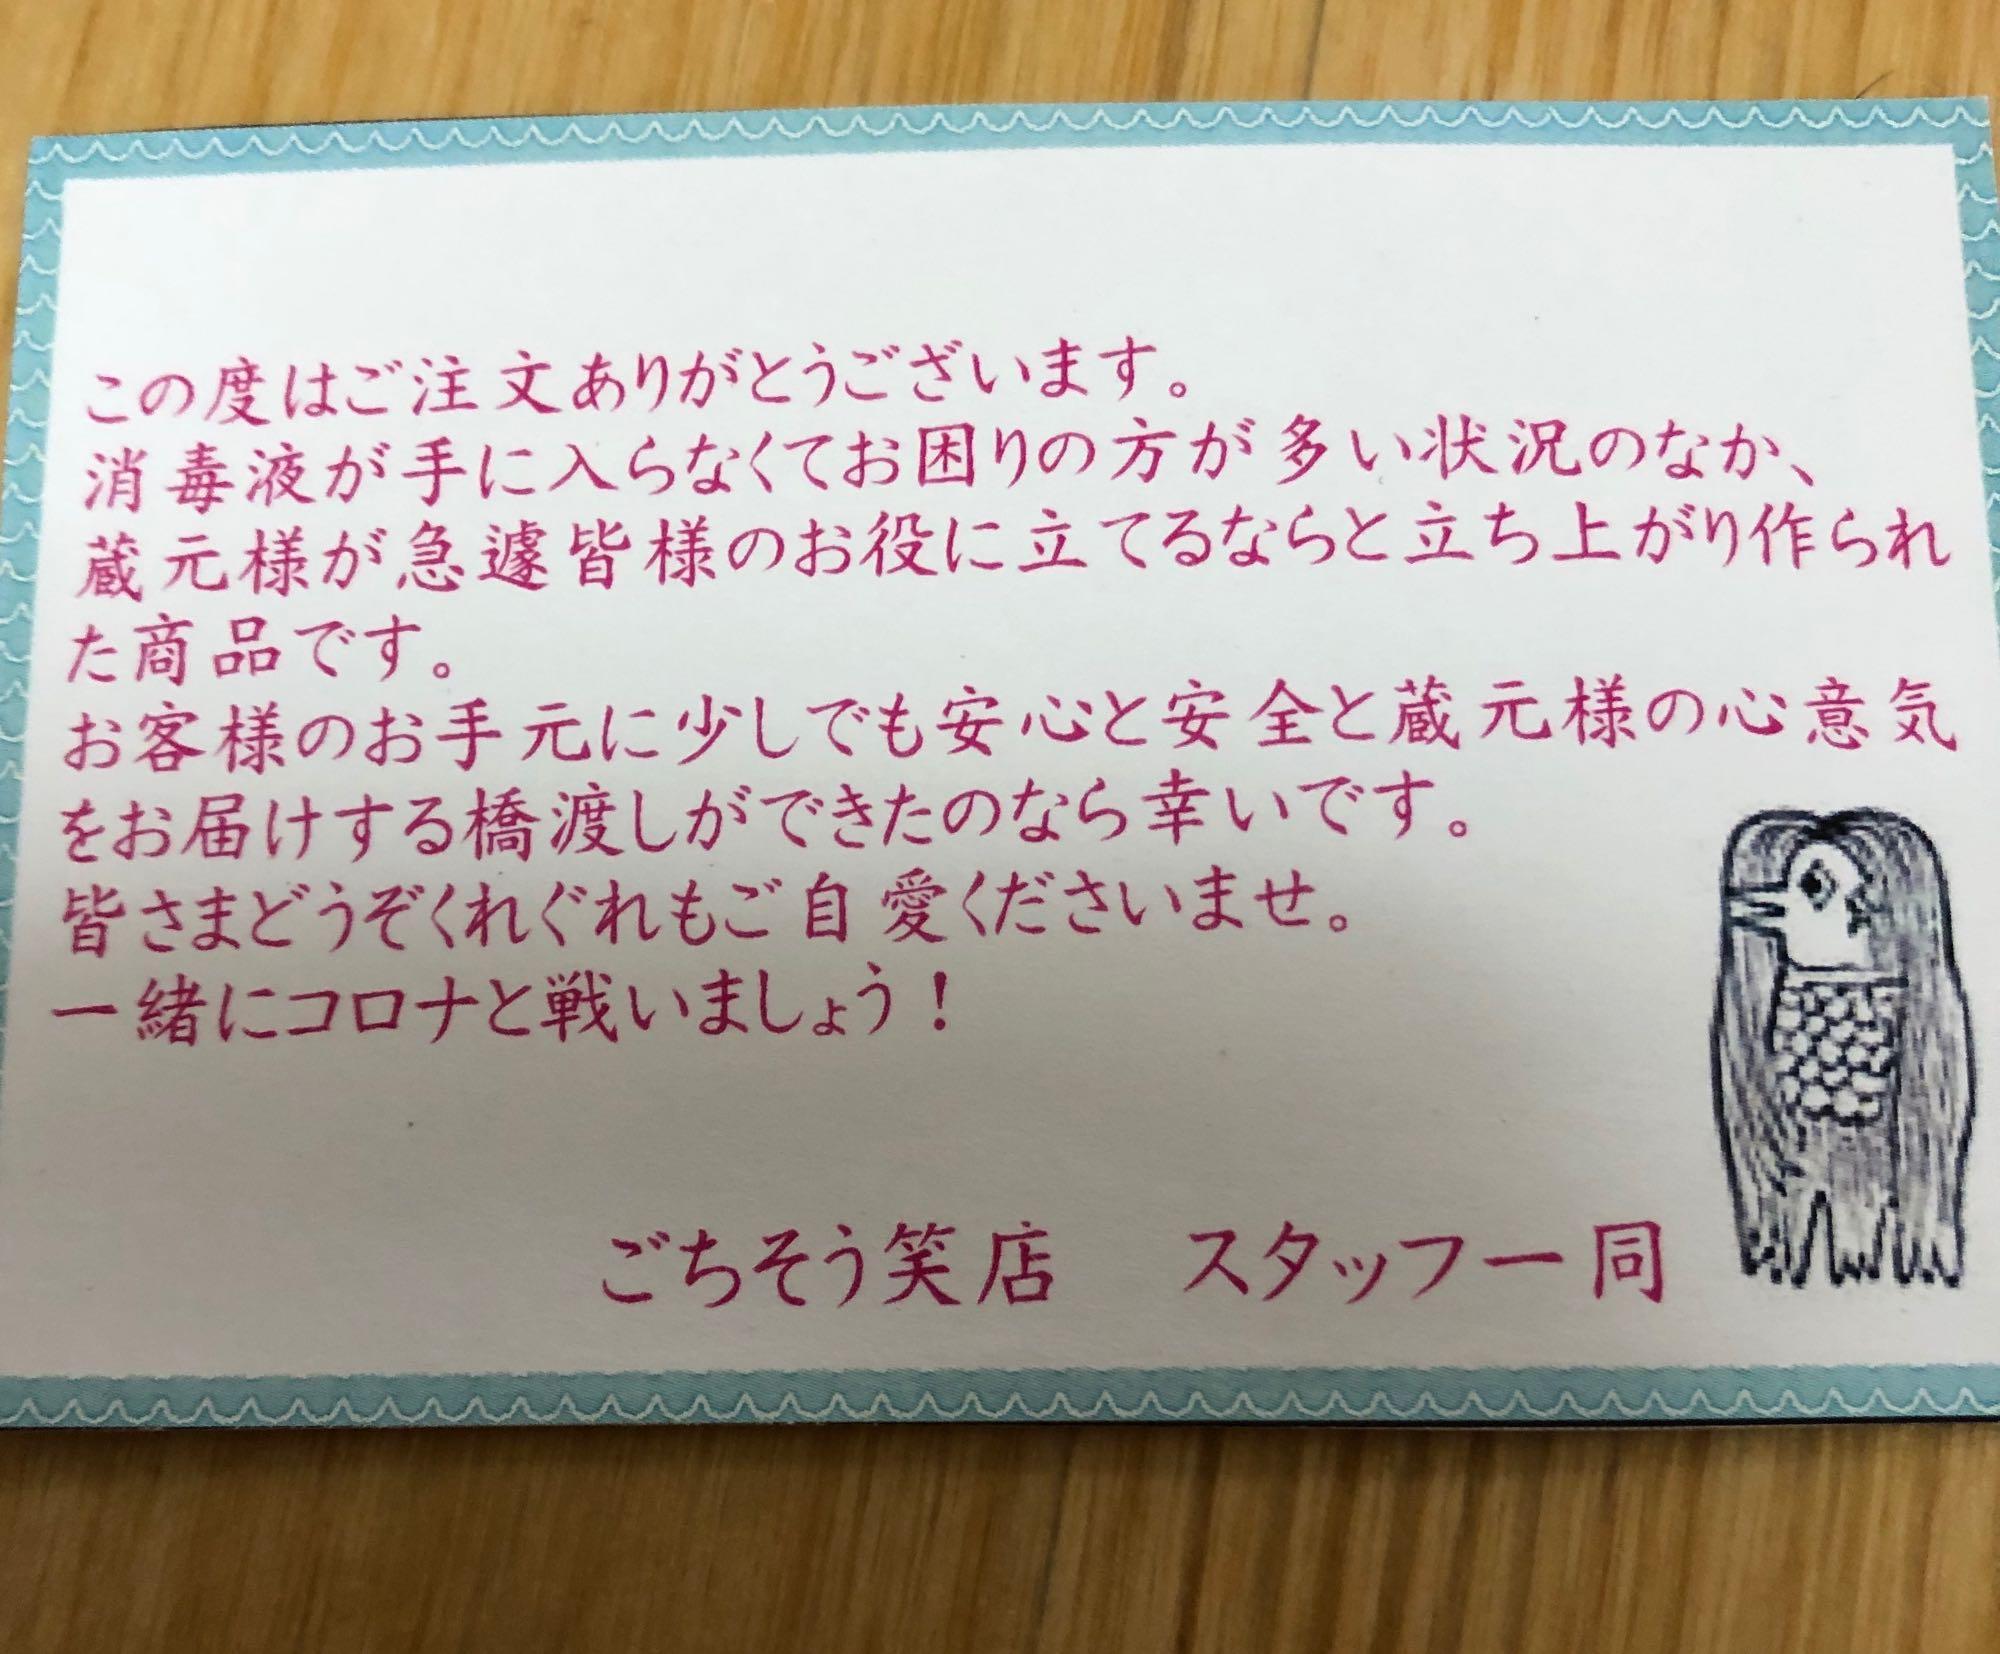 この度はご注文ありがとうございます。
消毒液が手に入らなくてお困りの方が多い状況のなか、
蔵元様が急遽皆様のお役に立てるならと立ち上がり作られ
た商品です。
お客様のお手元に少しでも安心と安全と蔵元様の心意気
をお届けする橋渡しができたのなら幸いです。
皆さまどうぞくれぐれもご自愛くださいませ。
一緒にコロナと戦いましょう！
ごちそう笑店　スタッフ一同